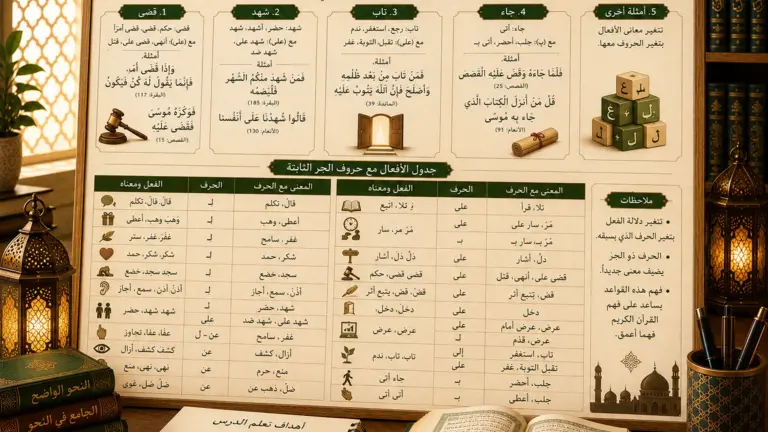 1. قضى
قضى: حكم، قضى، قضى أمرًا
مع (على): أنهى، قضى على، قتل
أمثلة:
وَإِذَا قَضَى أَمْرٍ،
فَإِنَّمَا يَقُولُ لَهُ كُنْ فَيَكُونُ
(البقرة: 117)
فَوَكَزَهُ مُوسَى
فَقَضَى عَلَيْهِ
(القصص: 15)
2. شهد
شهد: حضر، أشهد، شهد
مع (على): شهد على،
شهد ضد
أمثلة:
فَمَنْ شَهِدَ مِنْكُمُ الشَّهْر
فَلْيَصُمْهُ
(البقرة: 185)
قَالُوا شَهِدْنَا عَلَى أَنْفُسِنَا
(الأنعام: 130)
3. تاب
تاب: رجع، استغفر، ندم
مع (على): تقبل التوبة، غفر
أمثلة:
فَمَنْ تَابَ مِنْ بَعْدِ ظُلْمِهِ
وَأَصْلَحَ فَإِنَّ اللَّهَ يَتُوبُ عَلَيْهِ
(المائدة: 39)
4. جاء
جاء: أتى
مع (بـ): جلب، أحضر، أتى بـ
أمثلة:
فَلَمَّا جَاءَهُ وَقَصَّ عَلَيْهِ الْقَصَصَ
(القصص: 25)
قُلْ مَنْ أَنْزَلَ الْكِتَابَ الَّذِي
جَاءَ بِهِ مُوسَى
(الأنعام: 91)
5. أمثلة أخرى
تتغير معاني الأفعال
بتغير الحروف معها.
جدول الأفعال مع حروف الجر الثابتة
الفعل ومعناه الحرف المعنى مع الحرف
قال، قال، تكلم لـ قال، تكلم
وهَبَ وهب، أعطى لـ أعطى، وهب
غَفَرَ، غفر، ستر لـ غفر، سامح
شكر، شكر، حمد لـ شكر، حمد
سجد سجد، خضع لـ سجد، خضع
أذَنَ أذن، سمع، أجاز لـ أذن، سمع، أجاز
شهد شهد، حضر لـ شهد، حضر
على شهد على، شهد ضد
عفًا، عفا، تجاوز عن - ل غفر، سامح
كشف كشف، أزال عن أزال، كشف
نهى، نهى، منع عن منع، حرم
ضلّ ضل، غوى عن ضلّ، ذهب عن
الفعل ومعناه الحرف المعنى مع الحرف
تلا، اتبع على تلا، قرأ
مَرّ مر، سار على مَرّ، سار على
بـ مَرّ بـ، سار بـ
دَلّ دَل، أشار على دلّ، أشار
قضى قضى، حكم على قضى على، أنهى، قتل
قصّ، قص، يتبع أثر على قص، يَتبع أثر
دخل، دخل، على دخل
عرض، عرض على عرض، عرض أمام
لـ عرض، قدّم
تاب، تاب، ندم إلى تاب، استغفر
على تقبل التوبة، غفر
جاء أتى بـ جلب، أحضر
أتى أتى بـ جلب، أعطى
ملاحظات
• تتغير دلالة الفعل
بتغير الحرف الذي يسبقه.
• الحرف ذو الجر
يضيف معنى جديداً.
• فهم هذه القواعد
يساعد على فهم
القرآن الكريم
فهما أعمق.
النحو الواضح
الجامع في النحو
أهداف تعلم الدرس